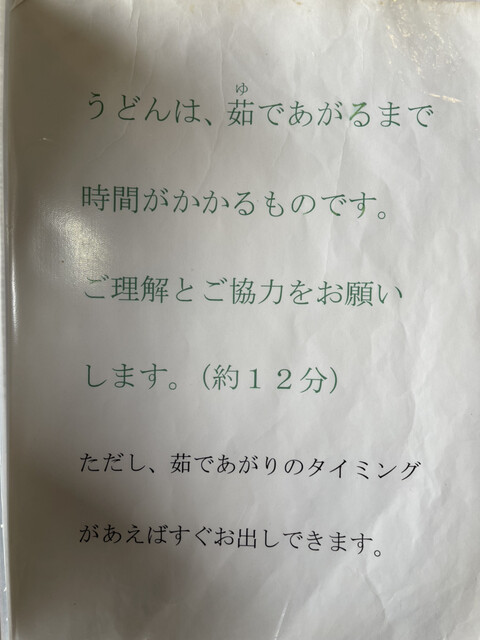 うどんは、茹であがるまで
時間がかかるものです。
ご理解とご協力をお願い
します。（約１２分）
ただし、茹であがりのタイミング
があえばすぐお出しできます。